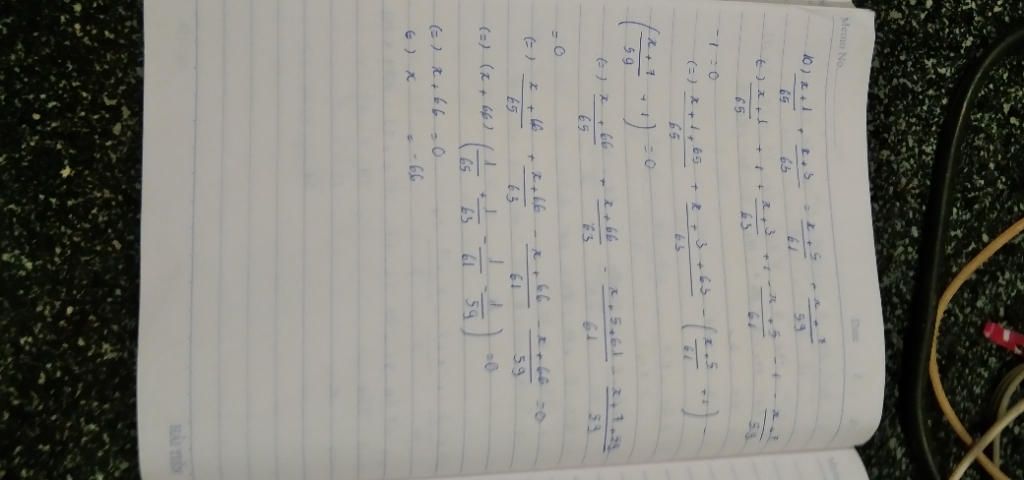 Memo No.
Date
10) x+1/65 + x+3/63 = x+5/61 + x+7/59
(=) x+1/65 + 1 + x+3/63 + 1 - x+5/61 - 1 - x+7/59
-1 = 0
(=) x+1+65/65 + x+3+63/63 - (x+5/61 + 1) -
(x+7/59 + 1) = 0
(=) x+66/65 + x+66/63 - x+5+61/61 - x+7+59/59
= 0
(=) x+66/65 + x+66/63 - x+66/61 - x+66/59 = 0
(=) (x+66) (1/65 + 1/63 - 1/61 - 1/59) = 0
(=) x+66 = 0
(=) x = -66